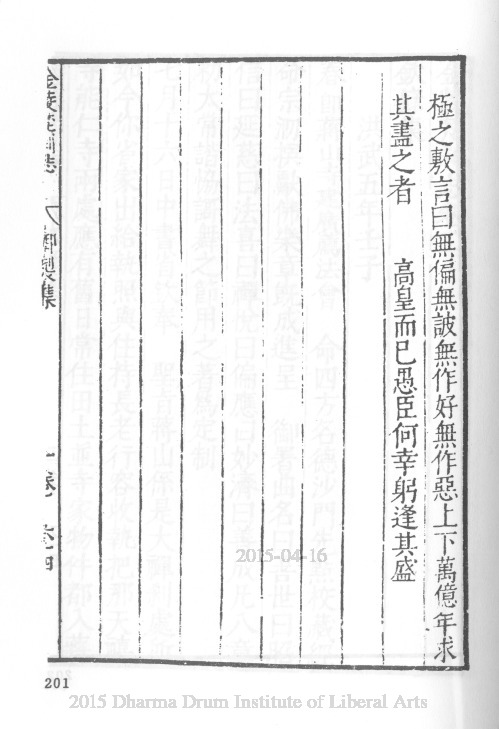 極之敷言曰無偏無詖無作好無作惡上下萬億年求
其盡之者　高皇而已愚臣何幸躬逢其盛
金陵梵剎志
御製集
一卷
201
2015-04-16
2015 Dharma Drum Institute of Liberal Arts